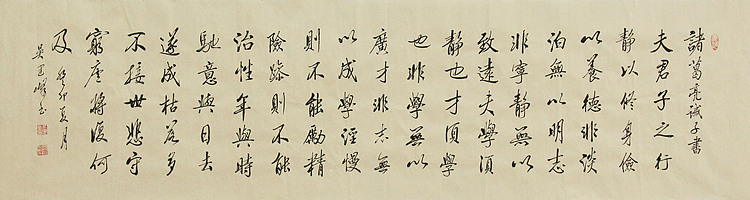 諸葛亮誡子書
夫君子之行
靜以修身儉
以養德非淡
泊無以明志
非寧靜無以
致遠夫學須
靜也才須學
也非學無以
廣才非志無
以成學淫慢
則不能勵精
險躁則不能
治性年與時
馳意與日去
遂成枯落多
不接世悲守
窮廬將復何
及
癸卯夏月